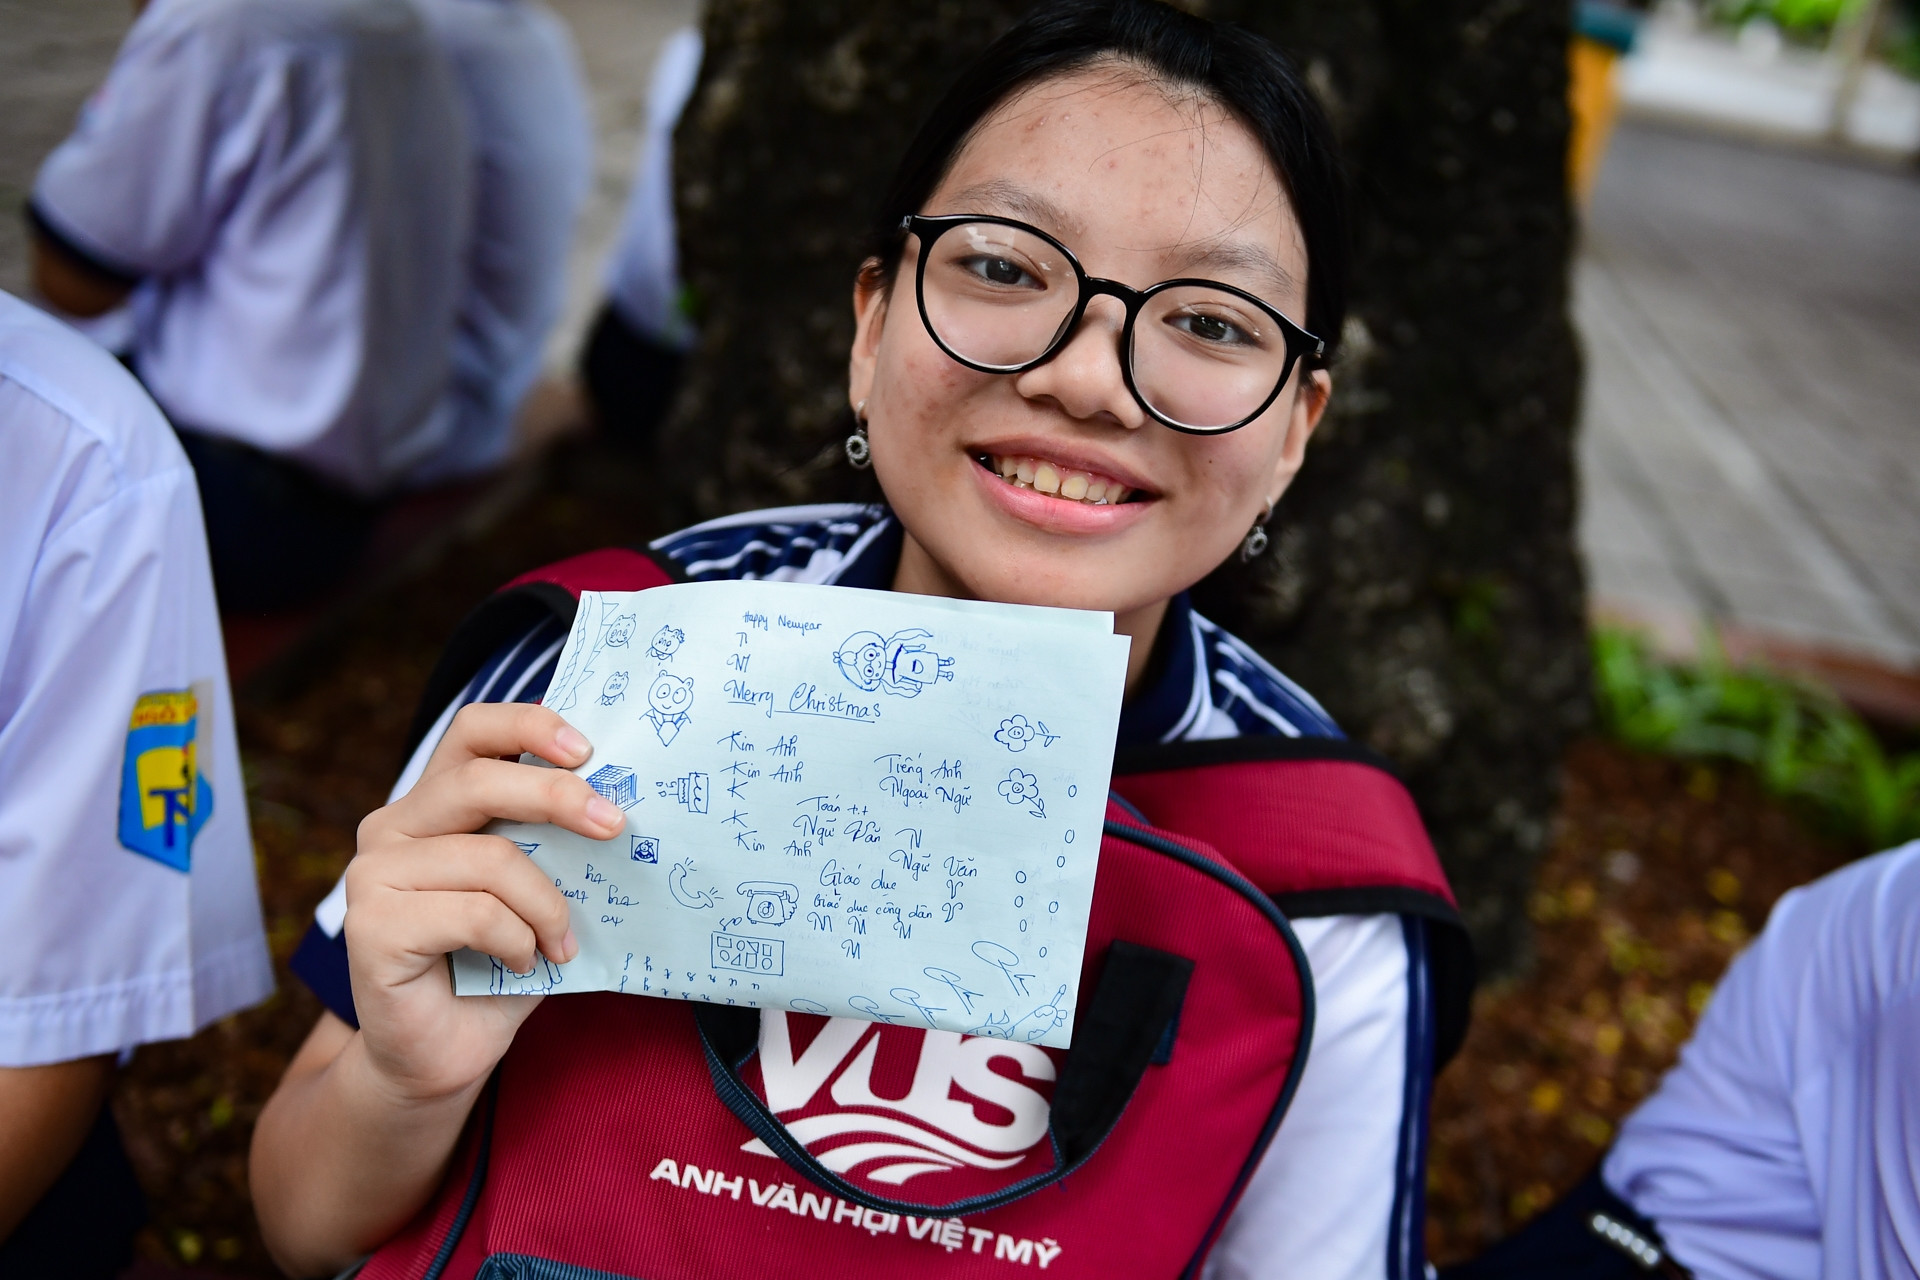 Happy Newyear
N
NT
Merry Christmas
Kim Anh
Kim Anh
K
K
Kim Anh
Tiếng Anh
Ngoại Ngữ
Toán t.t
Ngữ Văn N
Ngữ Văn
Giáo dục V
Giáo dục công dân V
M M M
M
VUS
ANH VĂN HỘI VIỆT MỸ